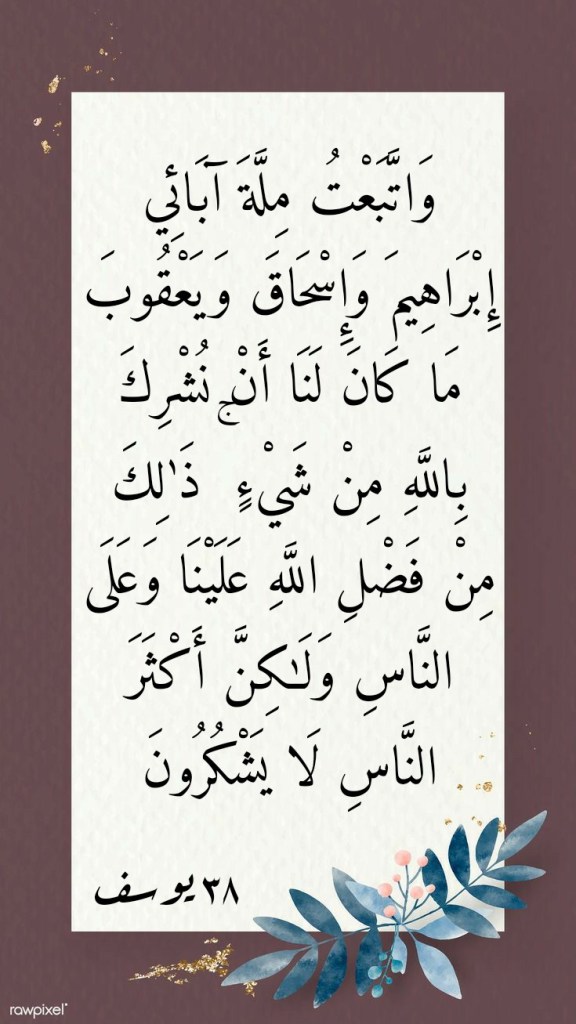 وَاتَّبَعْتُ مِلَّةَ آبَائِي
إِبْرَاهِيمَ وَإِسْحَاقَ وَيَعْقُوبَ
مَا كَانَ لَنَا أَنْ نُشْرِكَ
بِاللَّهِ مِنْ شَيْءٍ ۚ ذَٰلِكَ
مِنْ فَضْلِ اللَّهِ عَلَيْنَا وَعَلَى
النَّاسِ وَلَٰكِنَّ أَكْثَرَ
النَّاسِ لَا يَشْكُرُونَ
٣٨ يوسف
rawpixel